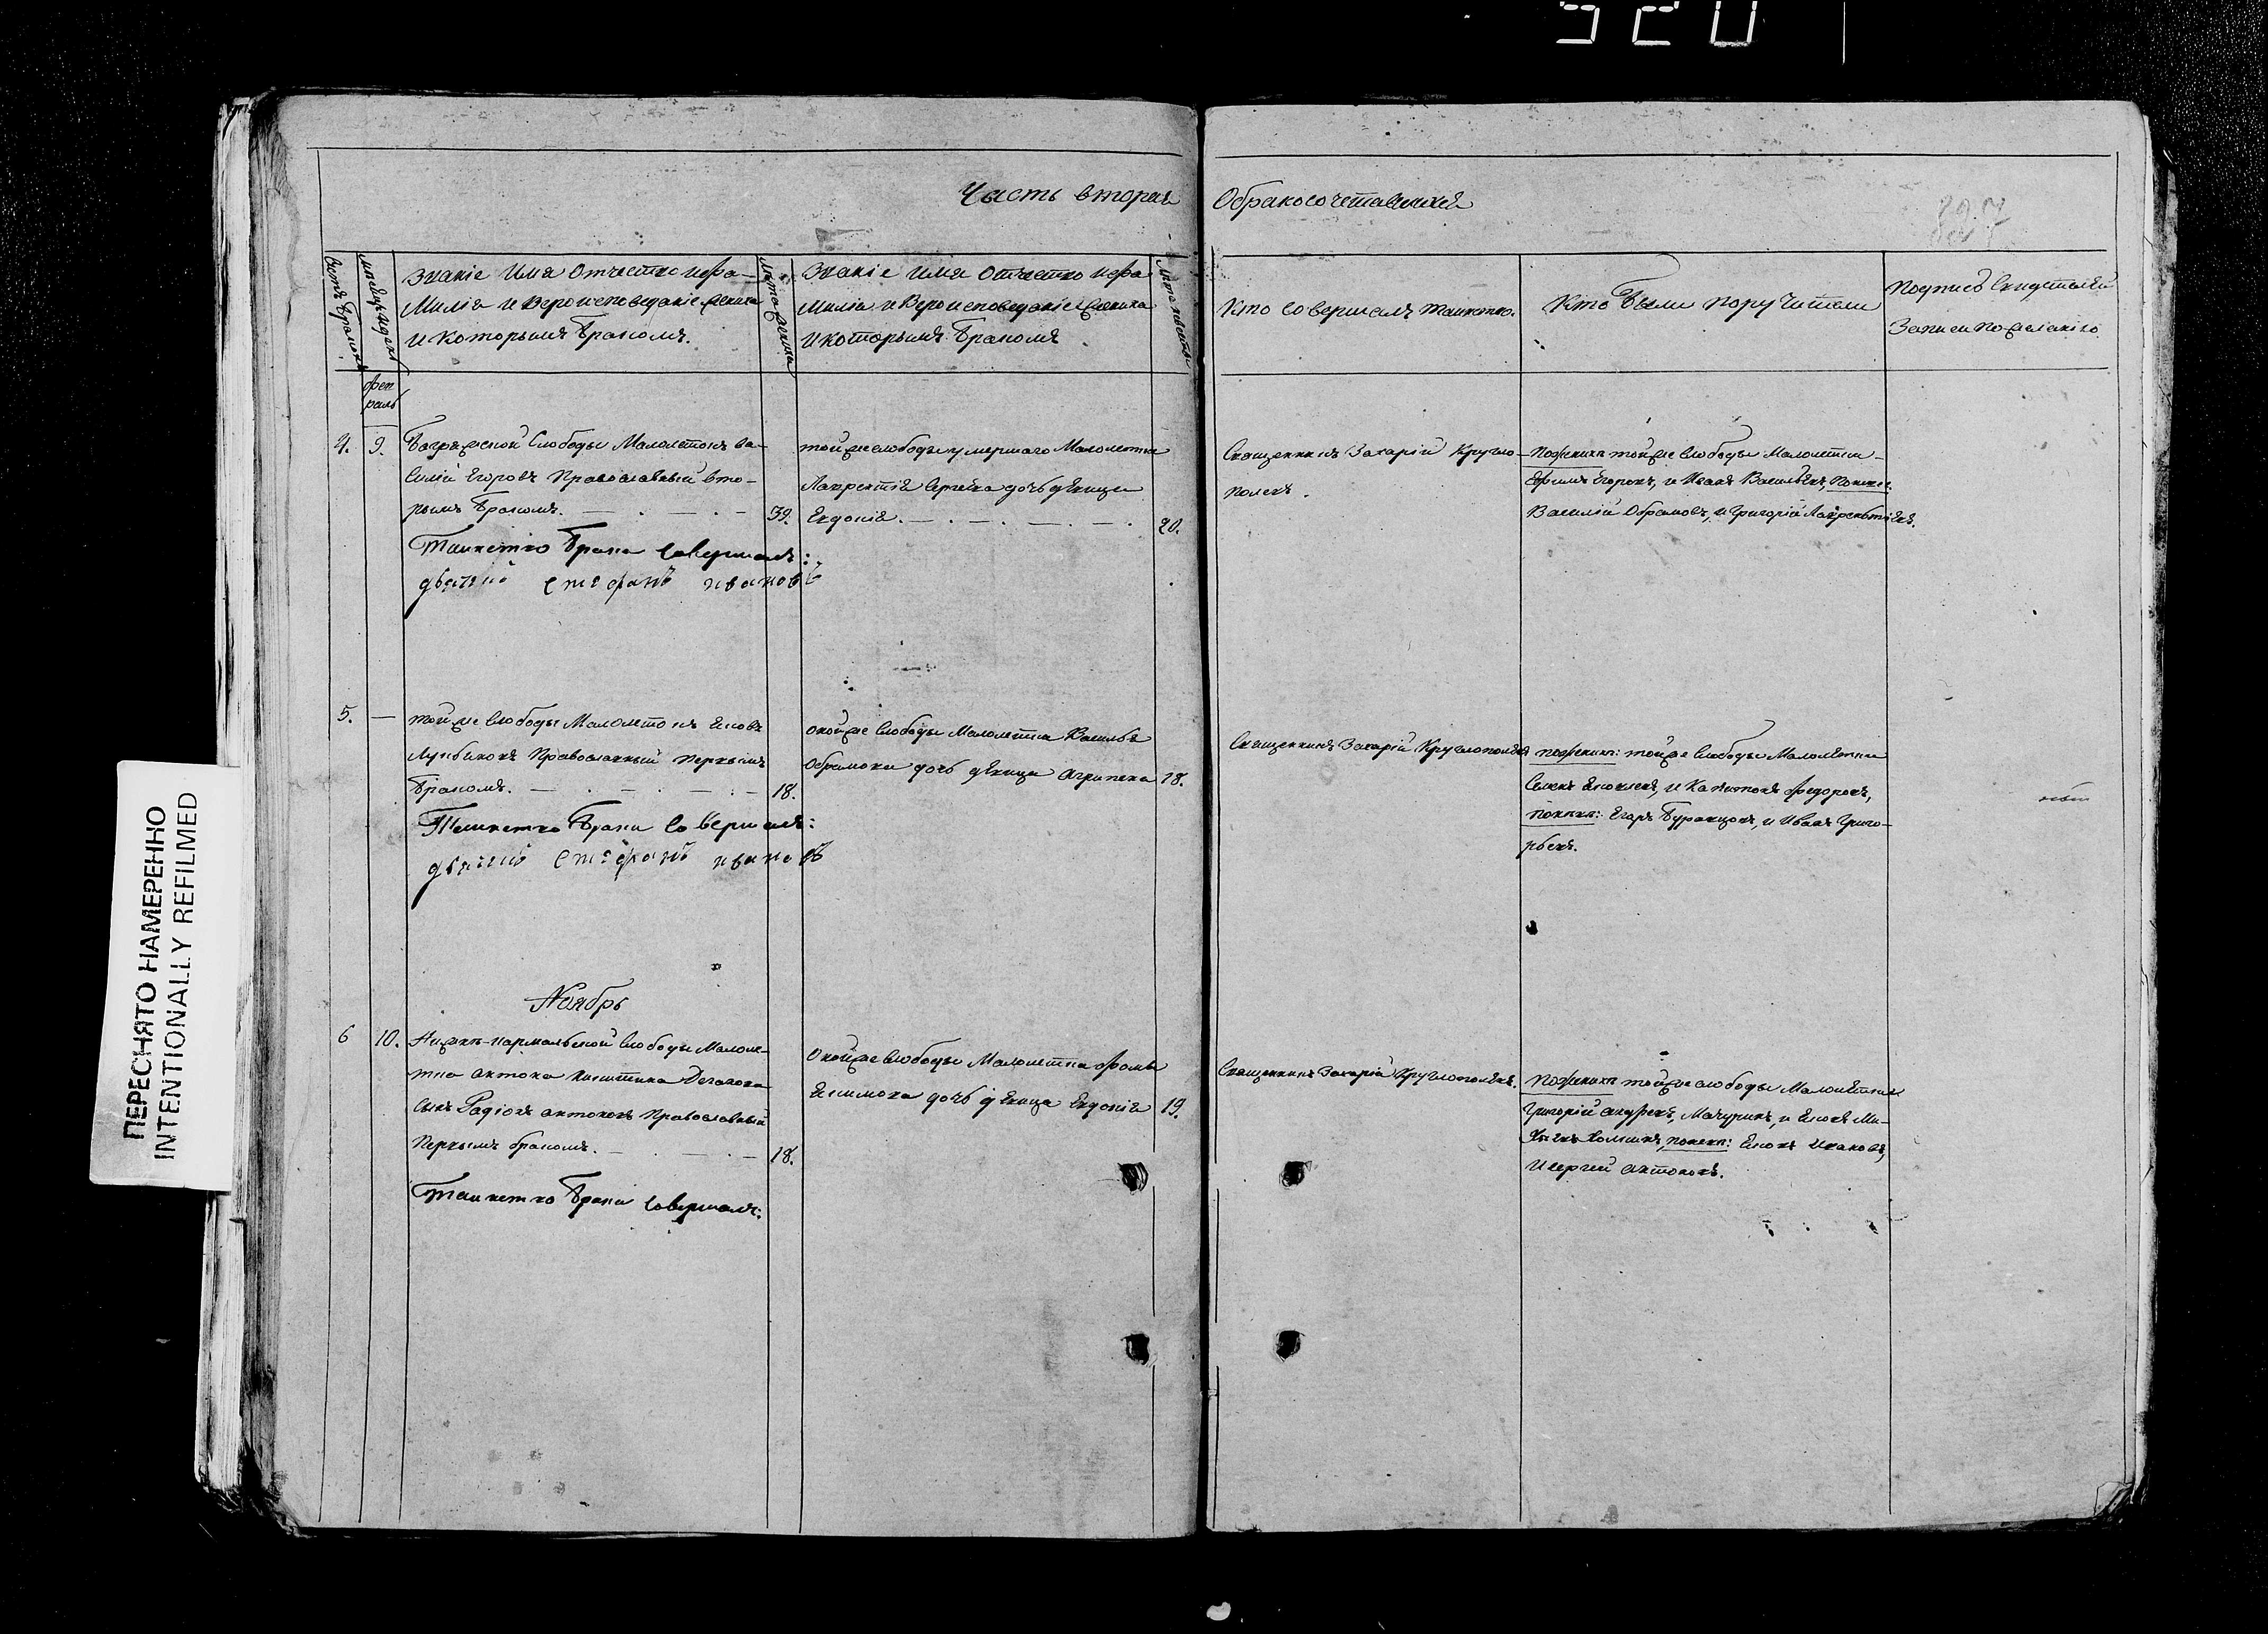 520
Часть вторая
Обракосочетавшихся
Счетъ браковъ
Мѣсяцъ и день
Званіе Имя Отчество и фа-
милія и Вероисповеданіе жениха
и которымъ бракомъ.
Лѣта жениха
Званіе имя отчество и фа
милія и Вероисповеданіе
и которымъ бракомъ
Лѣта невесты
Кто совершалъ таинство.
Кто были поручители
Подпись свидетелей
записи по желанію
4. 9.
слободы Малолетокъ Ва-
силій Егоровъ Православный вто-
рымъ бракомъ. 39.
Таинство брака совершалъ:
стефанъ ивановъ
тойже слободы умершаго Малолетка
Лаврентія Сергѣева дочь девица
Евдокія. 20.
Священникъ Захарій Кругло-
полевъ.
По женихѣ тойже слободы Малолетки
Ефимъ Егоровъ, и Иванъ Васильевъ,
Василій Обрамовъ, и Григорій Лаврентьевъ.
5. —
тойже слободы Малолетокъ
Православный первымъ
бракомъ. 18.
Таинство брака совершалъ:
стефанъ ивановъ
оной же слободы Малолетка Василья
Обрамова дочь девица Агрипена 18.
Священникъ Захарій Круглополевъ
по женихѣ: тойже слободы Малолетки
и Капитонъ Федоровъ,
Егоръ и Иванъ Григо-
рьевъ.
Ноябрь
6 10.
слободы Малоле-
тка Антона
сынъ Радіонъ Антоновъ Православный
Первымъ бракомъ. 18.
Таинство брака совершалъ:
Оной же слободы Малолетка Фомы
дочь девица Евдокія 19.
Священникъ Захарій Круглополевъ.
По женихѣ тойже слободы Малолетки
Григорій Андреевъ,
Ивановъ,
и Сергей Антоновъ.
ПЕРЕСНЯТО НАМЕРЕННО
INTENTIONALLY REFILMED